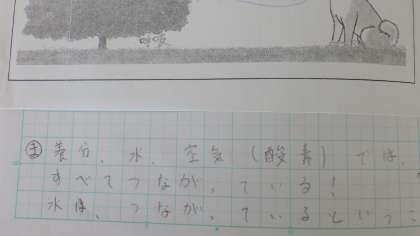 ま 養分、水、空気(酸素)では、
すべてつながっている!
水は、つながっているというこ